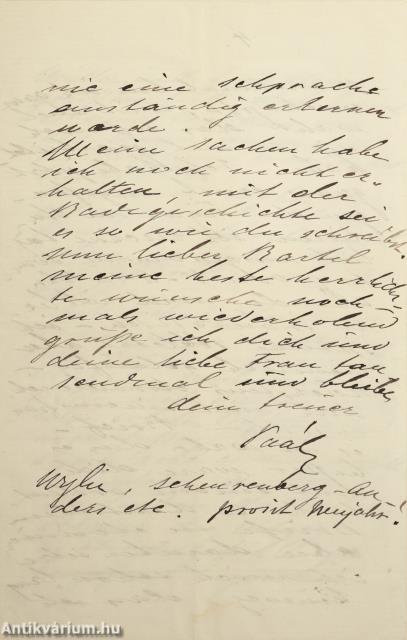 nie eine schprache
anständig erlernen
werde.
Meine sachen habe
ich noch nicht er-
halten, mit der
Badegeschichte sei
es so wie du schreibst.
nun lieber Bartel
meine beste herrlich-
te wünsche noch-
mals wiederholend
grüße ich dich und
deine liebe Frau tau
sendmal und bleibe
dein treuer
Paál
Wylie, scheurenberg-An-
ders etc. prosit Neujahr!
Antikvárium.hu